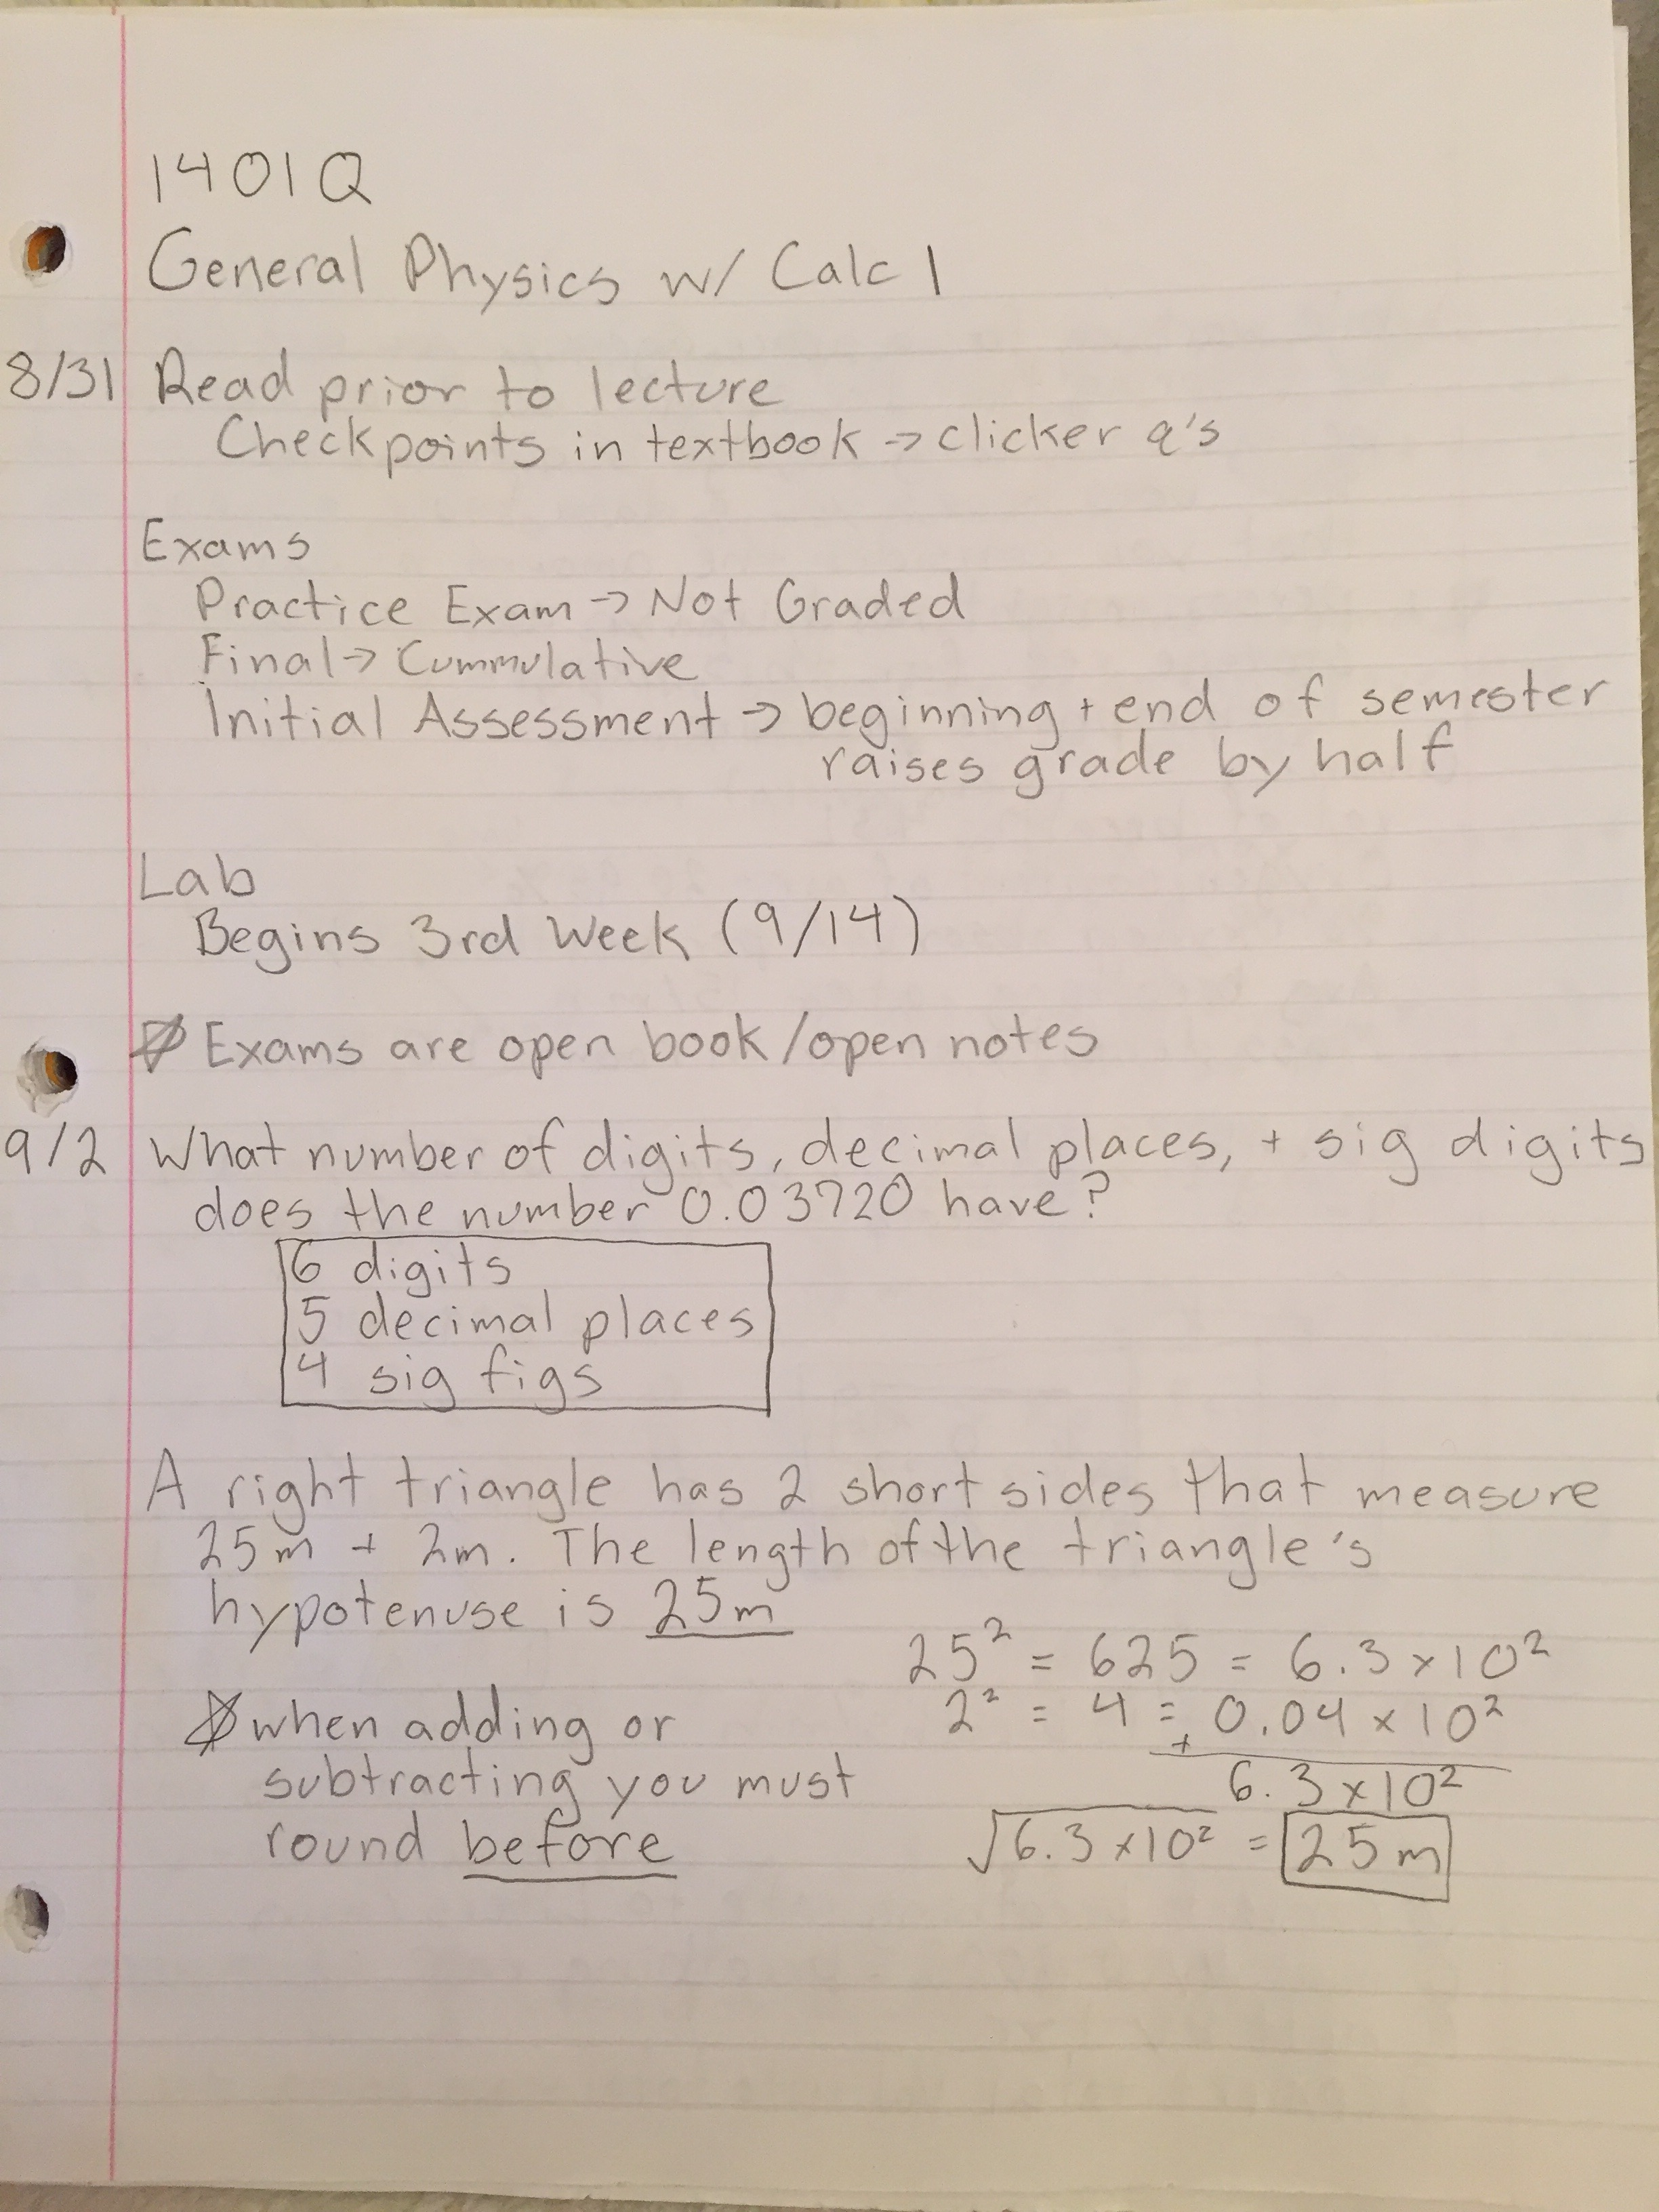 1401Q
General Physics w/ Calc 1
8/31 Read prior to lecture
Checkpoints in textbook → clicker q's
Exams
Practice Exam → Not Graded
Final → Cummulative
Initial Assessment → beginning + end of semester
raises grade by half
Lab
Begins 3rd Week (9/14)
☆ Exams are open book/open notes
9/2 What number of digits, decimal places, + sig digits
does the number 0.03720 have?
6 digits
5 decimal places
4 sig figs
A right triangle has 2 short sides that measure
25m + 2m. The length of the triangle's
hypotenuse is 25m
25² = 625 = 6.3 x 10²
2² = 4 = 0.04 x 10²
+
6.3 x 10²
√6.3 x 10² = 25m
☆ when adding or
subtracting you must
round before